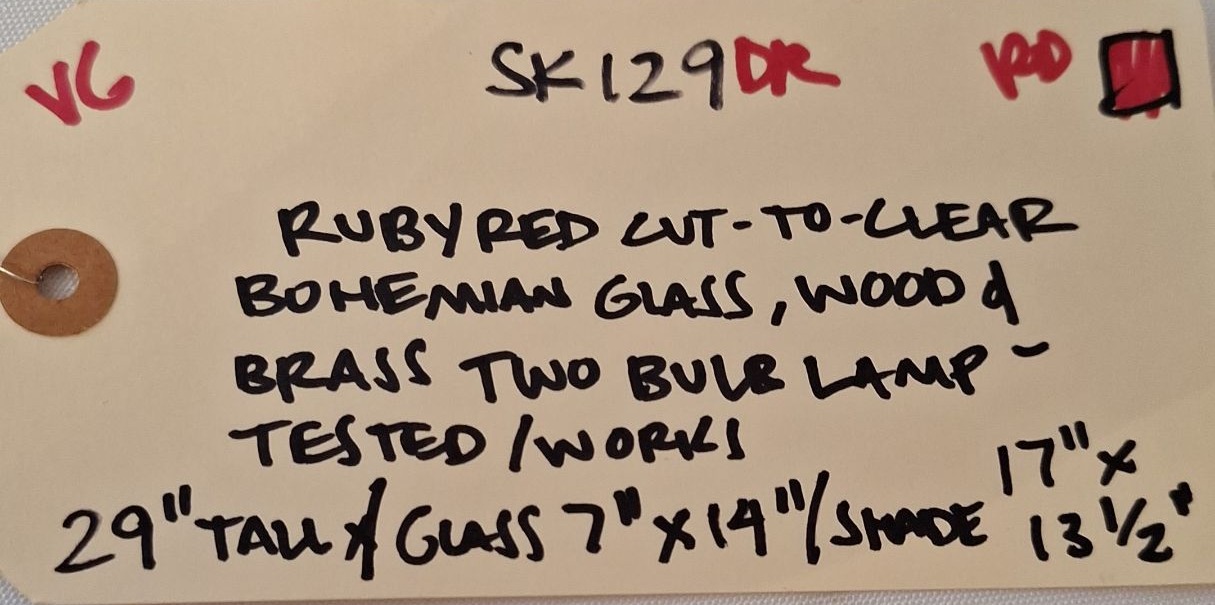 VG SK129DR RD
RUBY RED CUT-TO-CLEAR
BOHEMIAN GLASS, WOOD &
BRASS TWO BULB LAMP -
TESTED/WORKS
29" TALL / GLASS 7" X 14" / SHADE 17" X
13 1/2"